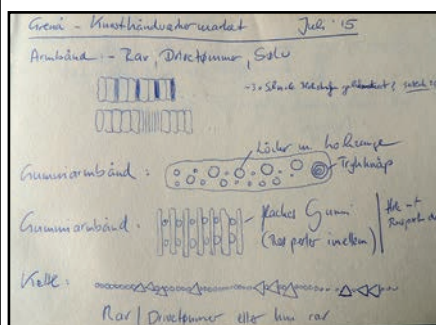 Grenå - Kunsthåndværkermarket Juli '15
Armbånd: - Rav, Drivetømmer, Sølv
Gummiarmbånd: Löcher m. hohlzange
Trykknap
Gummiarmbånd: flaches Gummi
(Rav perler imellem)
Kette:
Rav / Drivetømmer eller kun rav